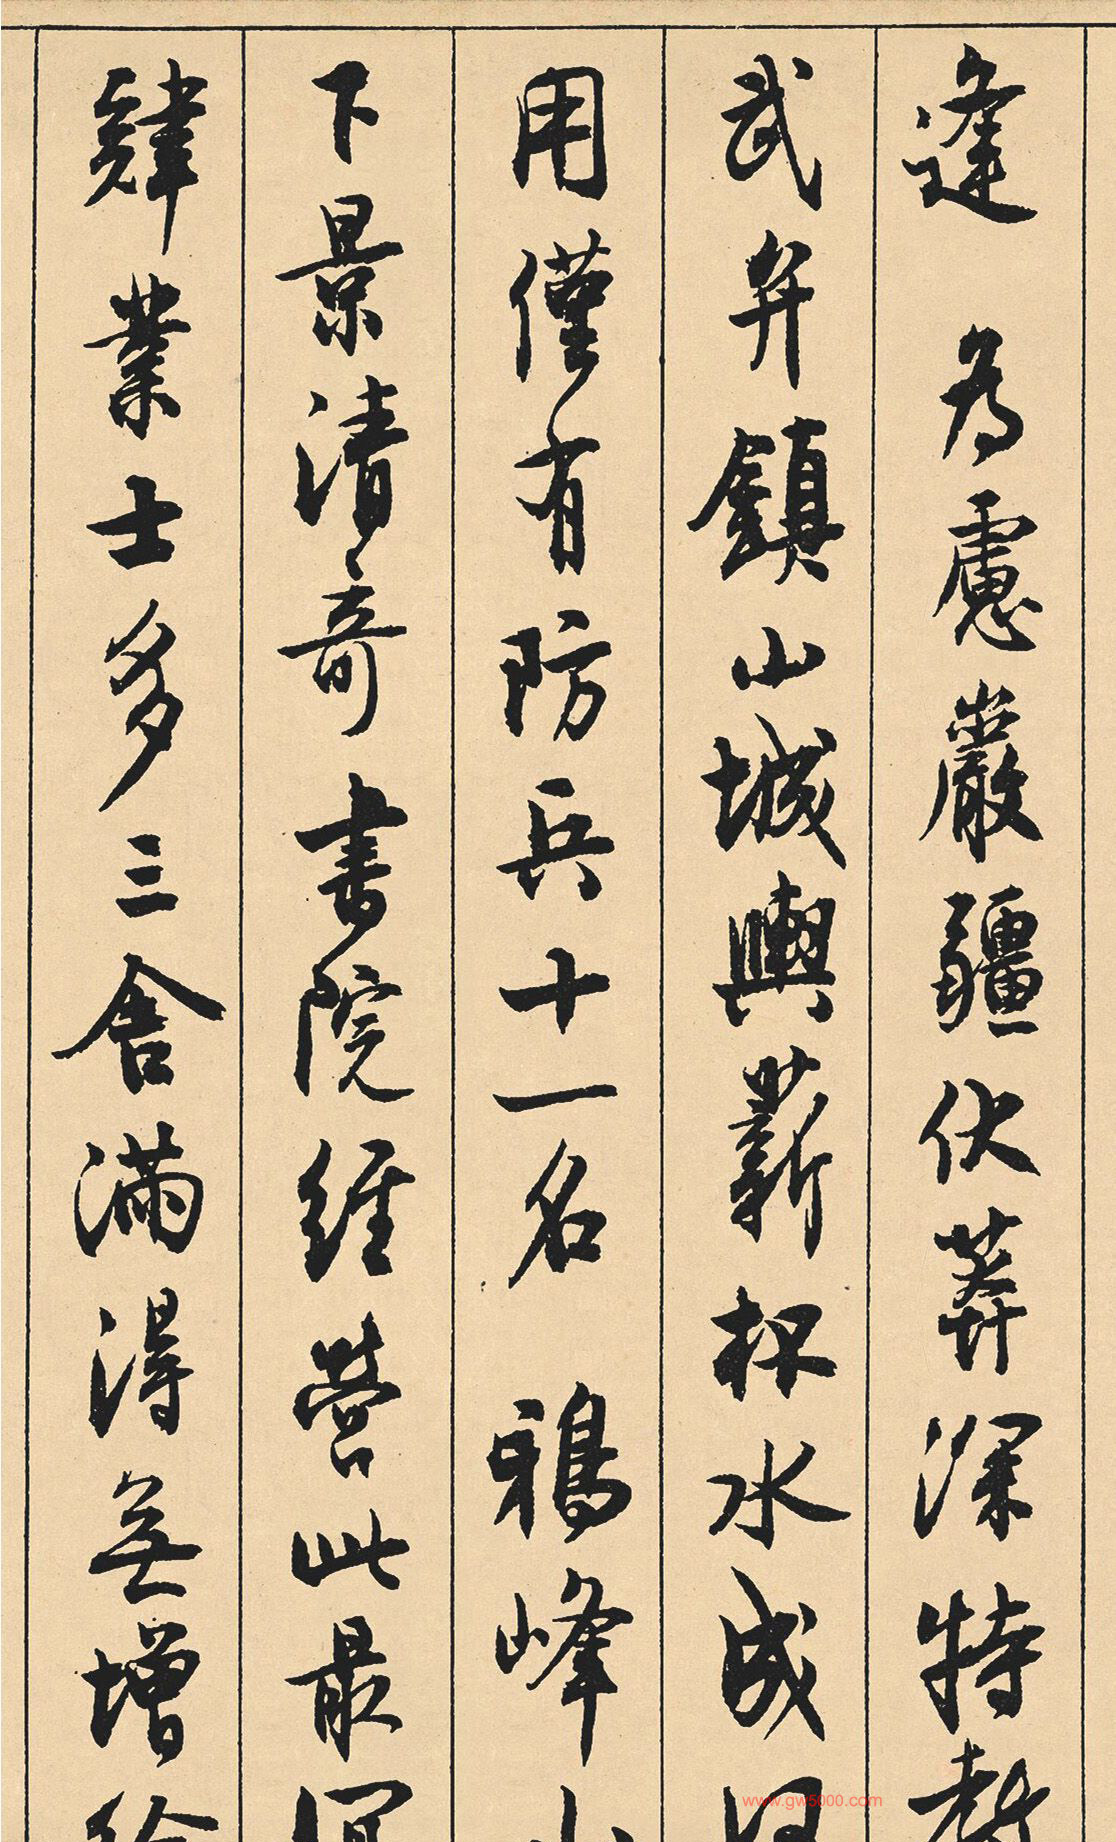 逢 為慮巖疆伏莽深特教
武弁鎮山城輿薪杯水成何
用僅有防兵十一名 鴉峰山
下景清奇書院經營此最宜
肄業士多三舍滿得無增給
www.gw5000.com